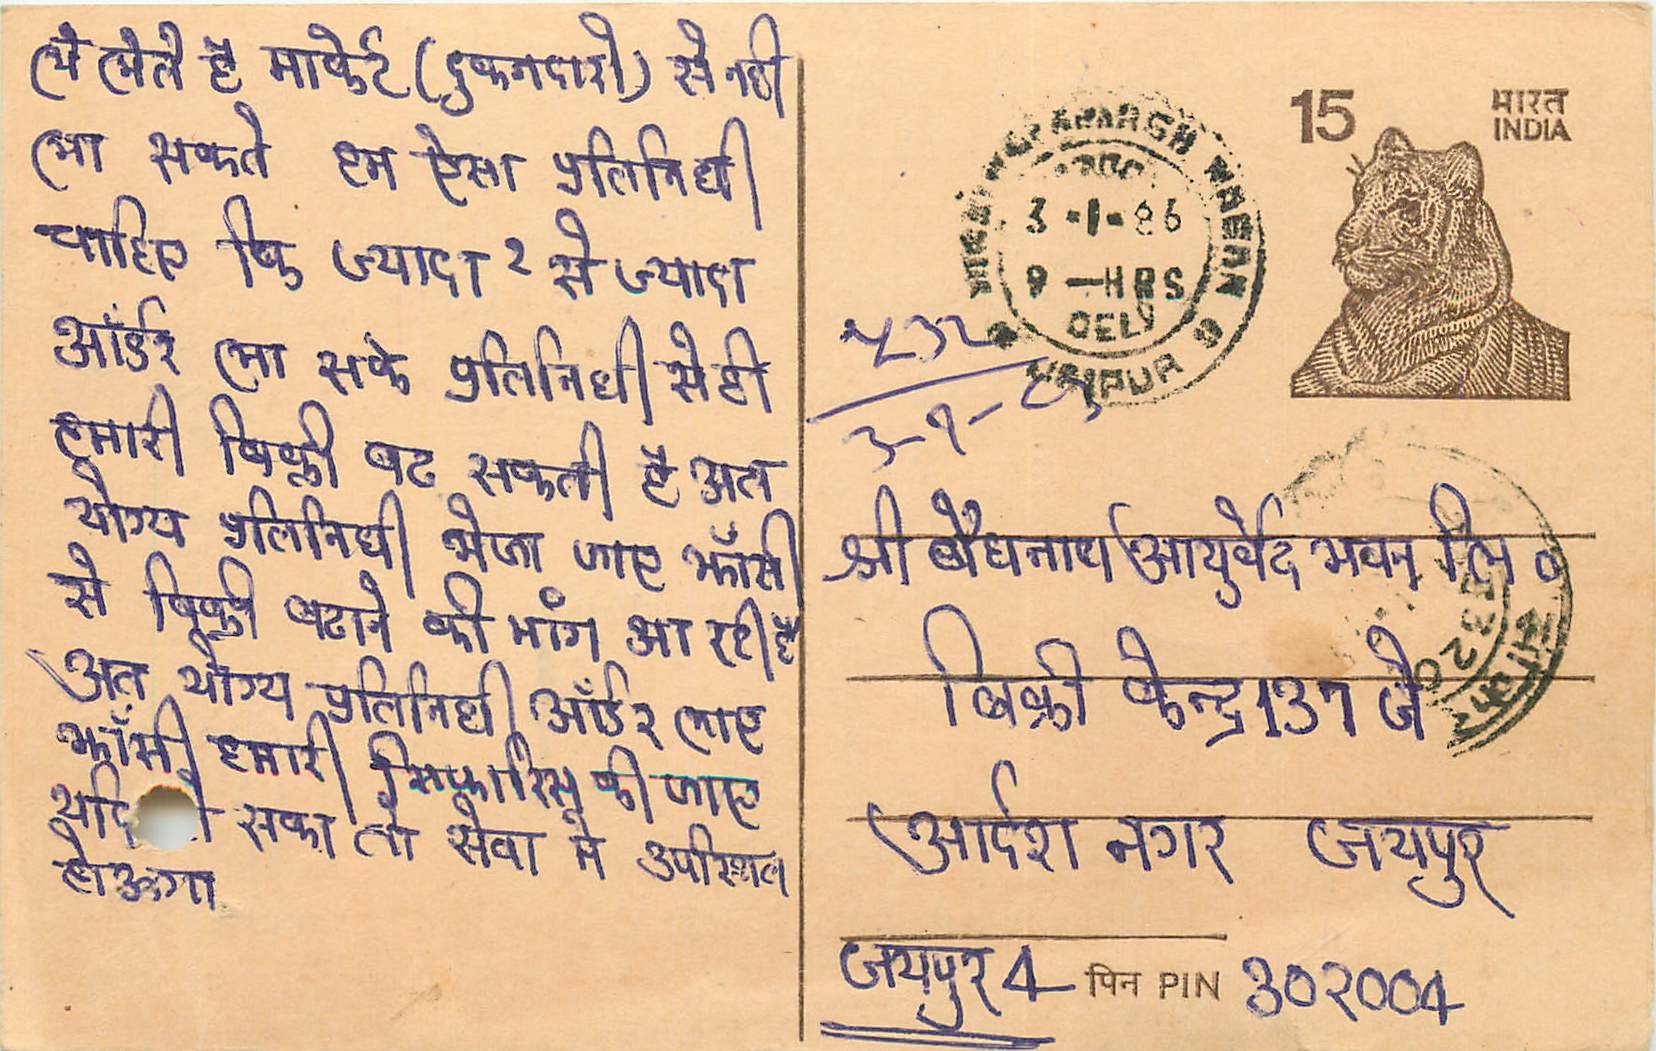 ले लेते है मार्केट (दुकनदारो) से नही
ला सकते हम ऐसा प्रतिनिधी
चाहिए कि ज्यादा २ से ज्यादा
ऑर्डर ला सके प्रतिनिधी से ही
हमारी बिक्री बट सकती है अत
योग्य प्रतिनिधी भेजा जाए झाँसी
से बिक्री बटाने की माँग आ रही है
अत योग्य प्रतिनिधी ऑर्डर लाए
झाँसी हमारी सिफारिस की जाए
यदि सका तो सेवा मे उपस्थित
होऊगा
15 भारत
INDIA
3-1-86
9-HRS
DELY
432
3-1-86
श्री बैधनाथ आयुर्वेद भवन लि०
बिक्री केन्द्र 137 जे
आर्दश नगर जयपुर
जयपुर 4 पिन PIN 302004